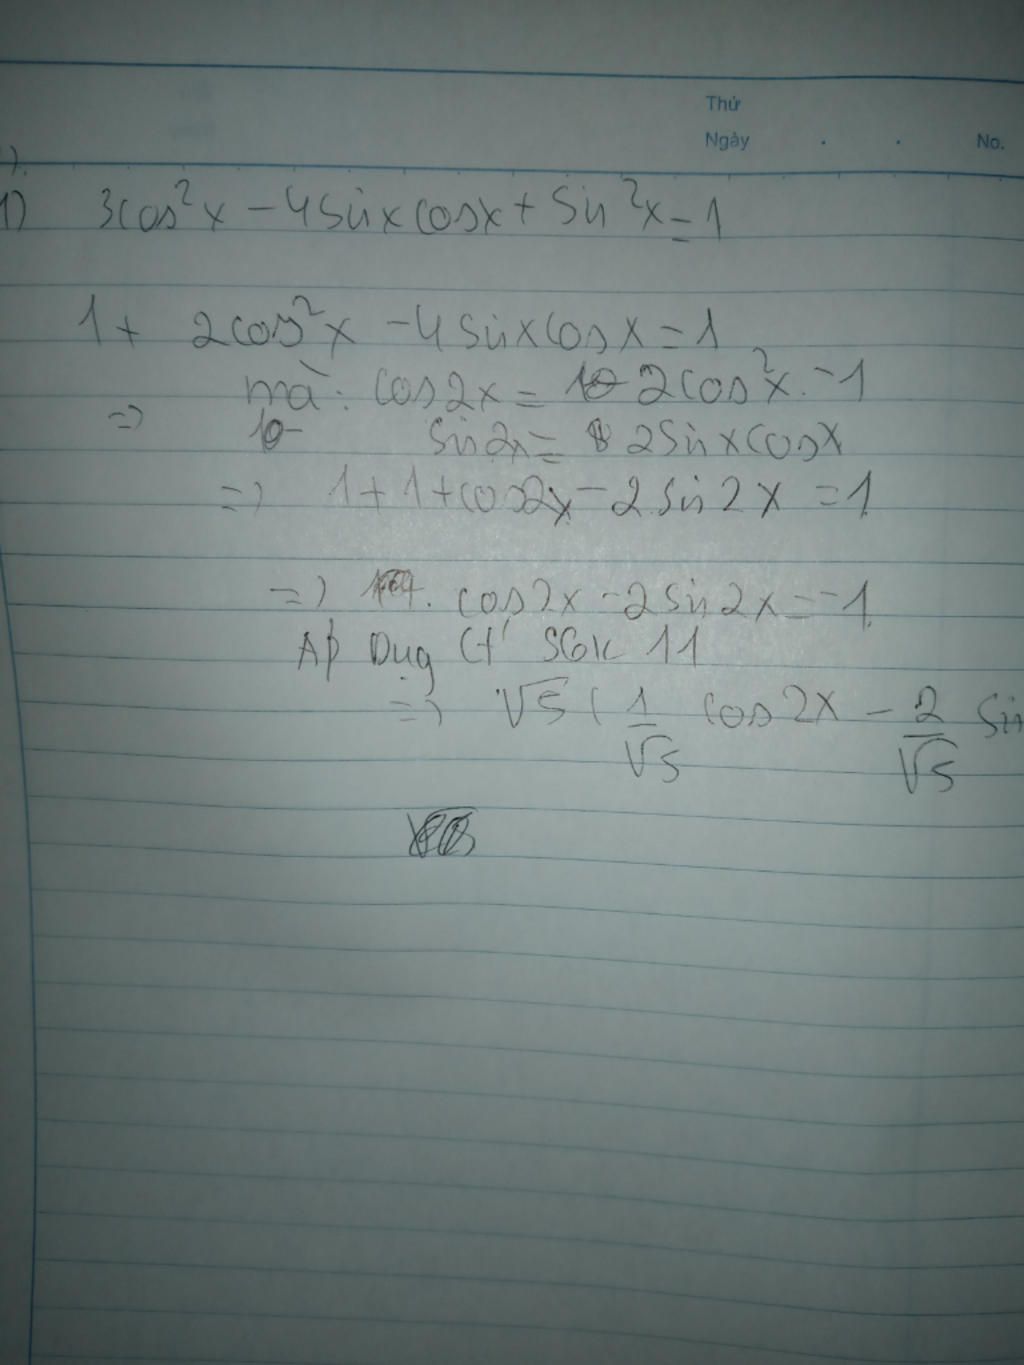 Thứ
Ngày . . No.
1) 3cos²x - 4sinxcosx + sin²x = 1
1 + 2cos²x - 4sinxcosx = 1
mà: cos2x = 2cos²x - 1
=> sin2x = 2sinxcosx
=> 1 + 1 + cos2x - 2sin2x = 1
=> cos2x - 2sin2x = -1
Áp Dụg Ct' SGK 11
=> √5 ( 1/√5 cos2x - 2/√5 sin